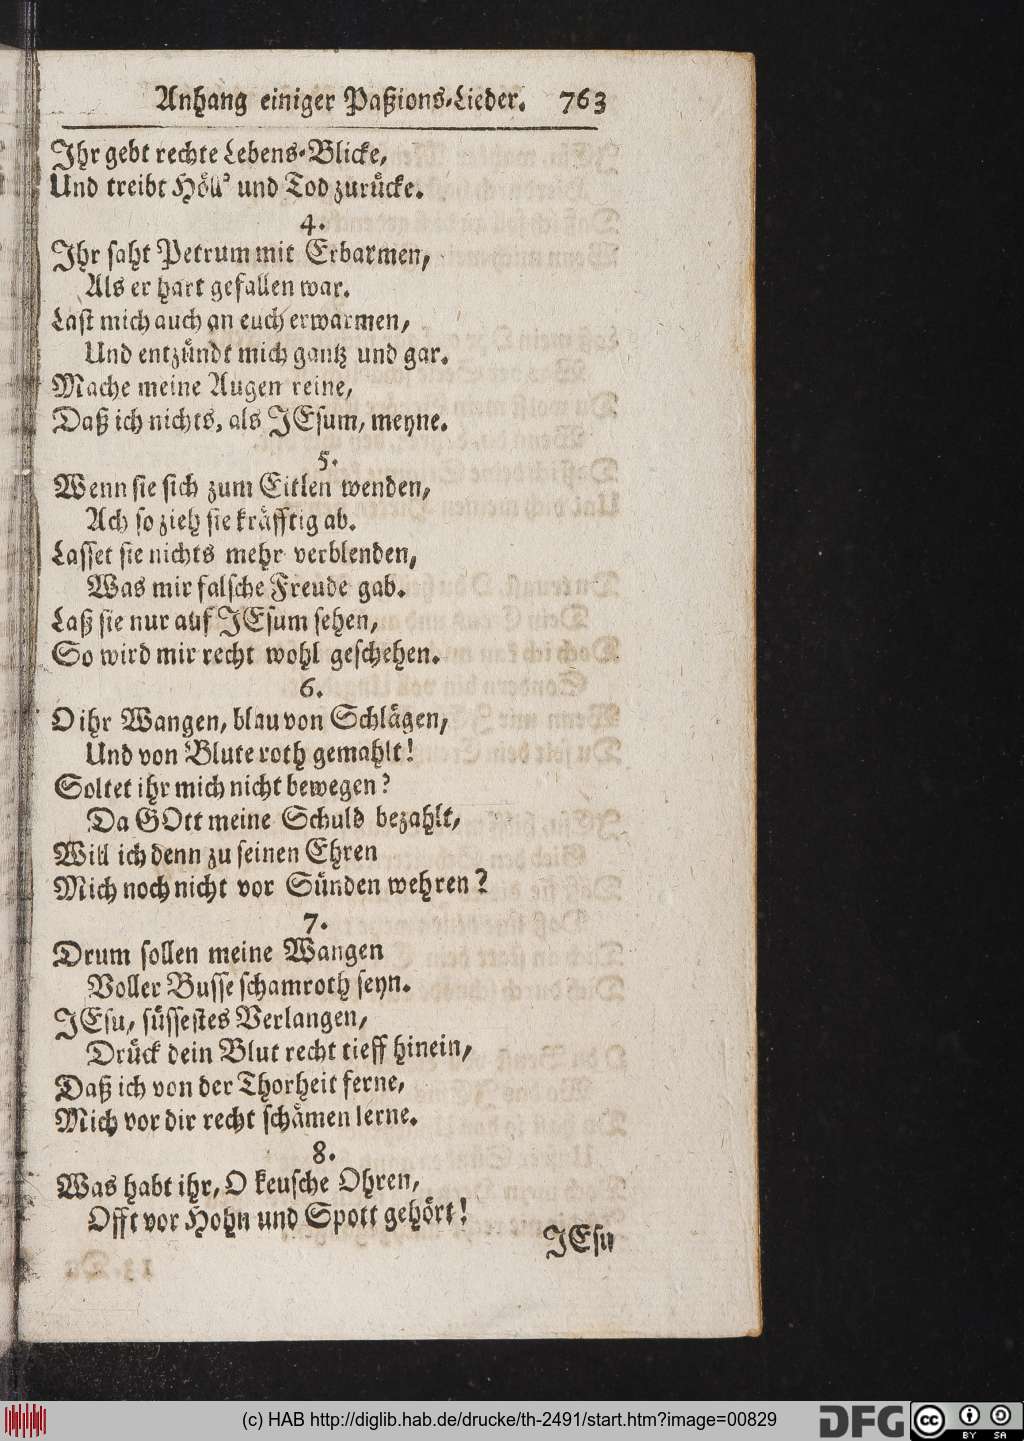 Anhang einiger Paßions-Lieder. 763
Ihr gebt rechte Lebens-Blicke,
Und treibt Höll' und Tod zurücke.
4.
Ihr saht Petrum mit Erbarmen,
Als er hart gefallen war.
Last mich auch an euch erwarmen,
Und entzündt mich gantz und gar.
Mache meine Augen reine,
Daß ich nichts, als JEsum, meyne.
5.
Wenn sie sich zum Eitlen wenden,
Ach so zieh sie kräfftig ab.
Lasset sie nichts mehr verblenden,
Was mir falsche Freude gab.
Laß sie nur auf JEsum sehen,
So wird mir recht wohl geschehen.
6.
O ihr Wangen, blau von Schlägen,
Und von Blute roth gemahlt!
Soltet ihr mich nicht bewegen?
Da GOtt meine Schuld bezahlt,
Will ich denn zu seinen Ehren
Mich noch nicht vor Sünden wehren?
7.
Drum sollen meine Wangen
Voller Busse schamroth seyn.
JEsu, süssestes Verlangen,
Drück dein Blut recht tieff hinein,
Daß ich von der Thorheit ferne,
Mich vor dir recht schämen lerne.
8.
Was habt ihr, O keusche Ohren,
Offt vor Hohn und Spott gehört!
JEsu
(c) HAB http://diglib.hab.de/drucke/th-2491/start.htm?image=00829
DFG
cc BY SA